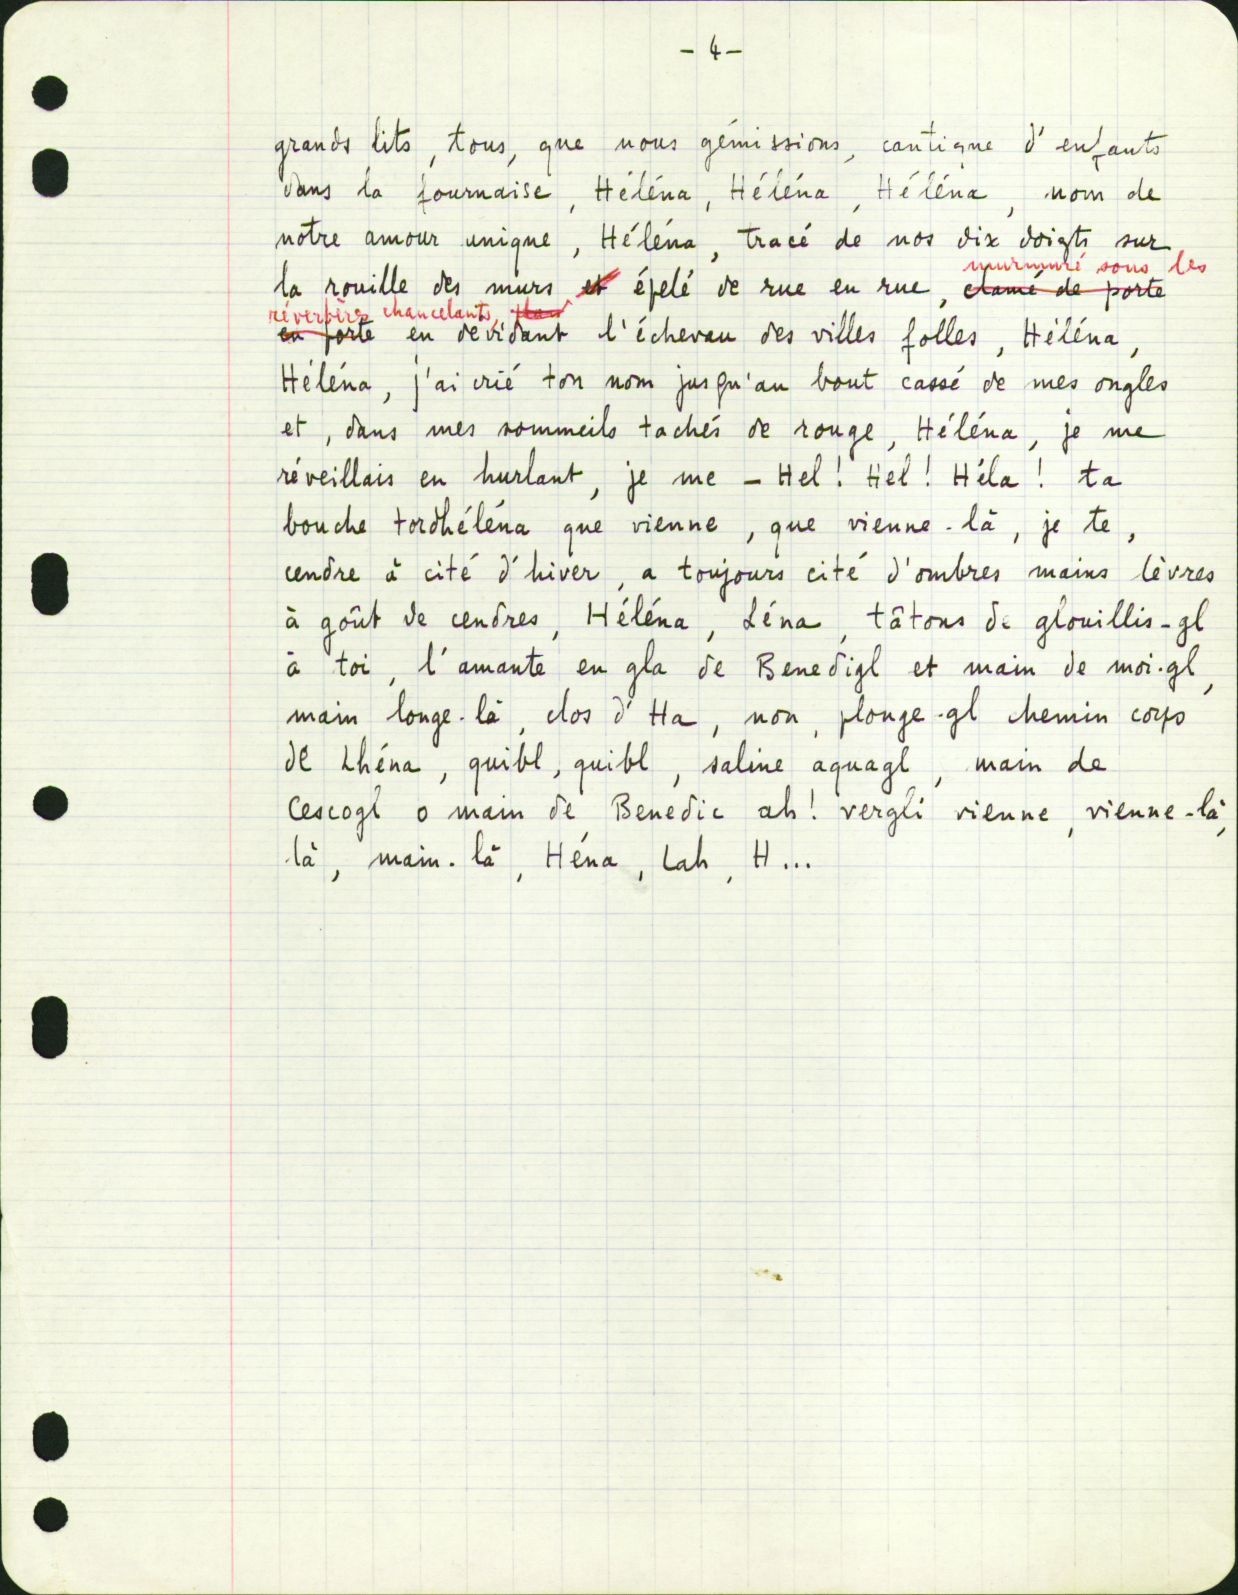 - 4 -
grands lits, tous, que nous gémissions, cantique d'enfants
dans la fournaise, Héléna, Héléna, Héléna, nom de
notre amour unique, Héléna, tracé de nos dix doigts sur
murmuré sous les
la rouille des murs et épelé de rue en rue, clamé de porte
réverbères chancelants,
en porte en dévidant l'écheveau des villes folles, Héléna,
Héléna, j'ai crié ton nom jusqu'au bout cassé de mes ongles
et, dans mes sommeils tachés de rouge, Héléna, je me
réveillais en hurlant, je me - Hel! Hel! Héla! ta
bouche tordhéléna que vienne, que vienne-là, je te,
cendre à cité d'hiver, a toujours cité d'ombres mains lèvres
à goût de cendres, Héléna, Léna, tâtons de glouillis-gl
à toi, l'amante en gla de Benedigl et main de moi-gl,
main longe-là, clos d'Ha, non, plonge-gl chemin corps
de Lhéna, quibl, quibl, saline aquagl, main de
Cescogl o main de Benedic ah! vergli vienne, vienne-là,
là, main-là, Héna, Lah, H...